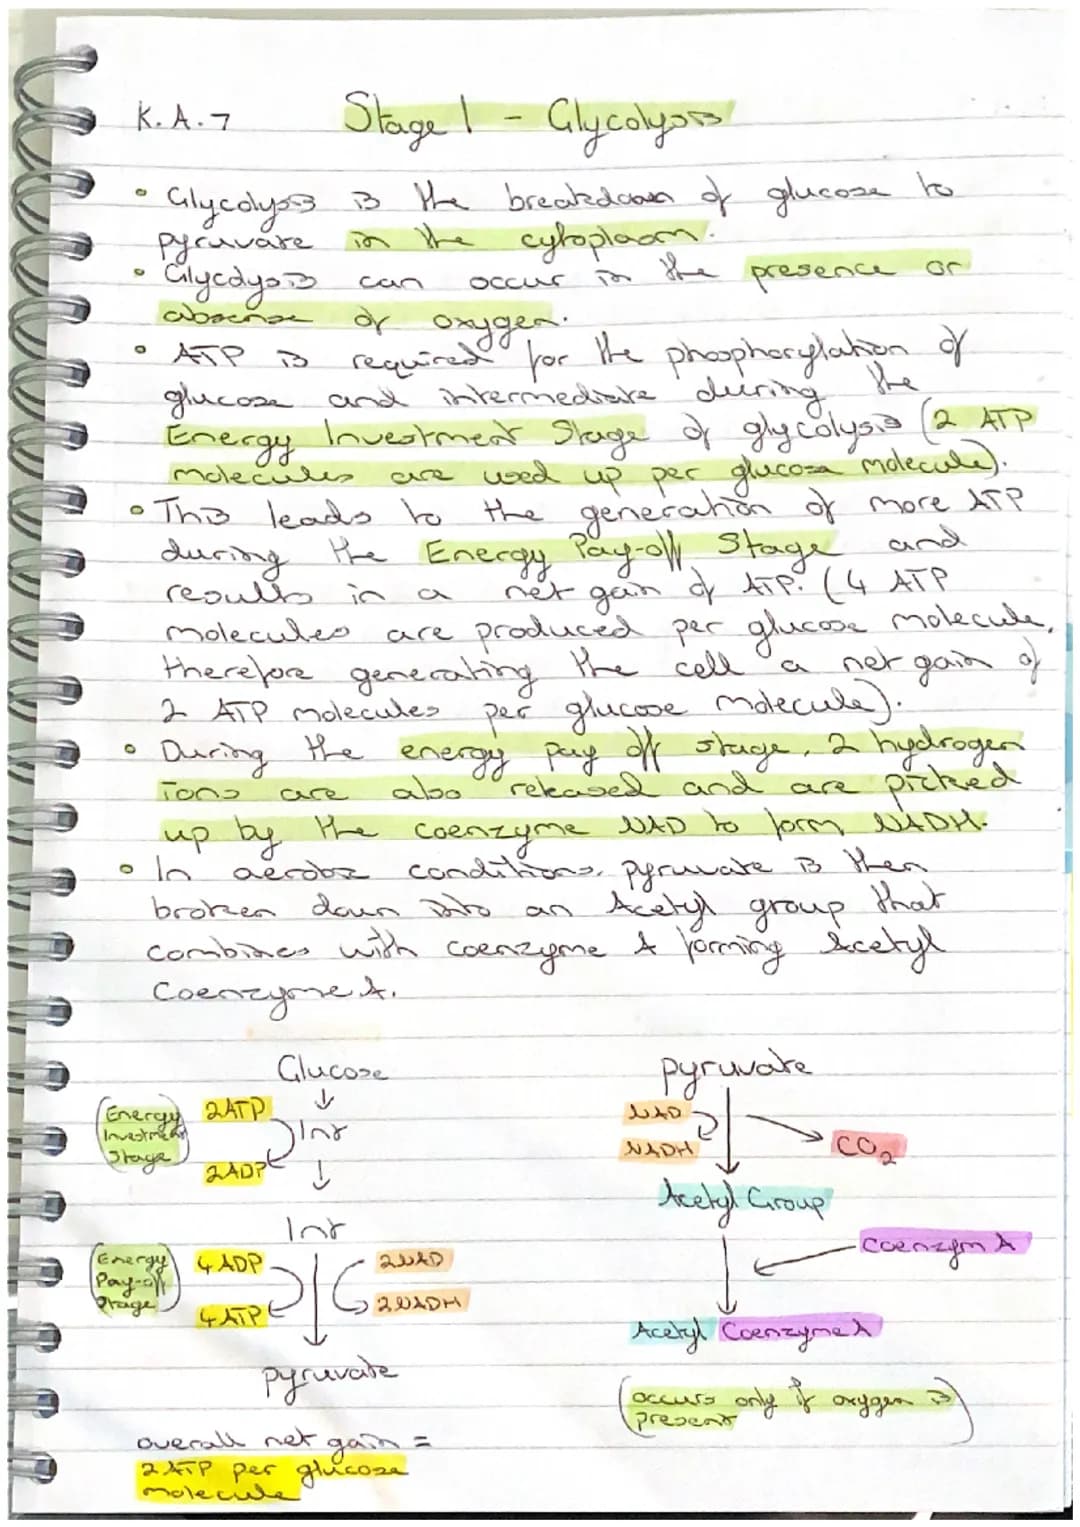 K.A.7 Stage 1 - Glycolysis
• Glycolysis is the breakdown of glucose to
pyruvate in the cytoplasm.
• Glycolysis can occur in the presence or
absense of oxygen.
• ATP is required for the phosphorylation of
glucose and intermediate during the
Energy Investment Stage of glycolysis (2 ATP
molecules are used up per glucose molecule).
• This leads to the generation of more ATP
during the Energy Pay-off Stage and
results in a net gain of ATP. (4 ATP
molecules are produced per glucose molecule,
therefore generating the cell a net gain of
2 ATP molecules per glucose molecule).
• During the energy pay off stage, 2 hydrogen
ions are also released and are picked
up by the coenzyme NAD to form NADH.
• In aerobic conditions, pyruvate is then
broken down into an Acetyl group that
combines with coenzyme A forming Acetyl
Coenzyme A.
Glucose
(Energy
Investment
Stage)
2ATP
2ADP
Int
Int
(Energy
Pay-off
Stage)
4 ADP
4 ATP
2NAD
2NADH
pyruvate
overall net gain =
2ATP per glucose
molecule
pyruvate
NAD
NADH
CO2
Acetyl Group
Coenzym A
Acetyl Coenzyme A
(occurs only if oxygen is
present)